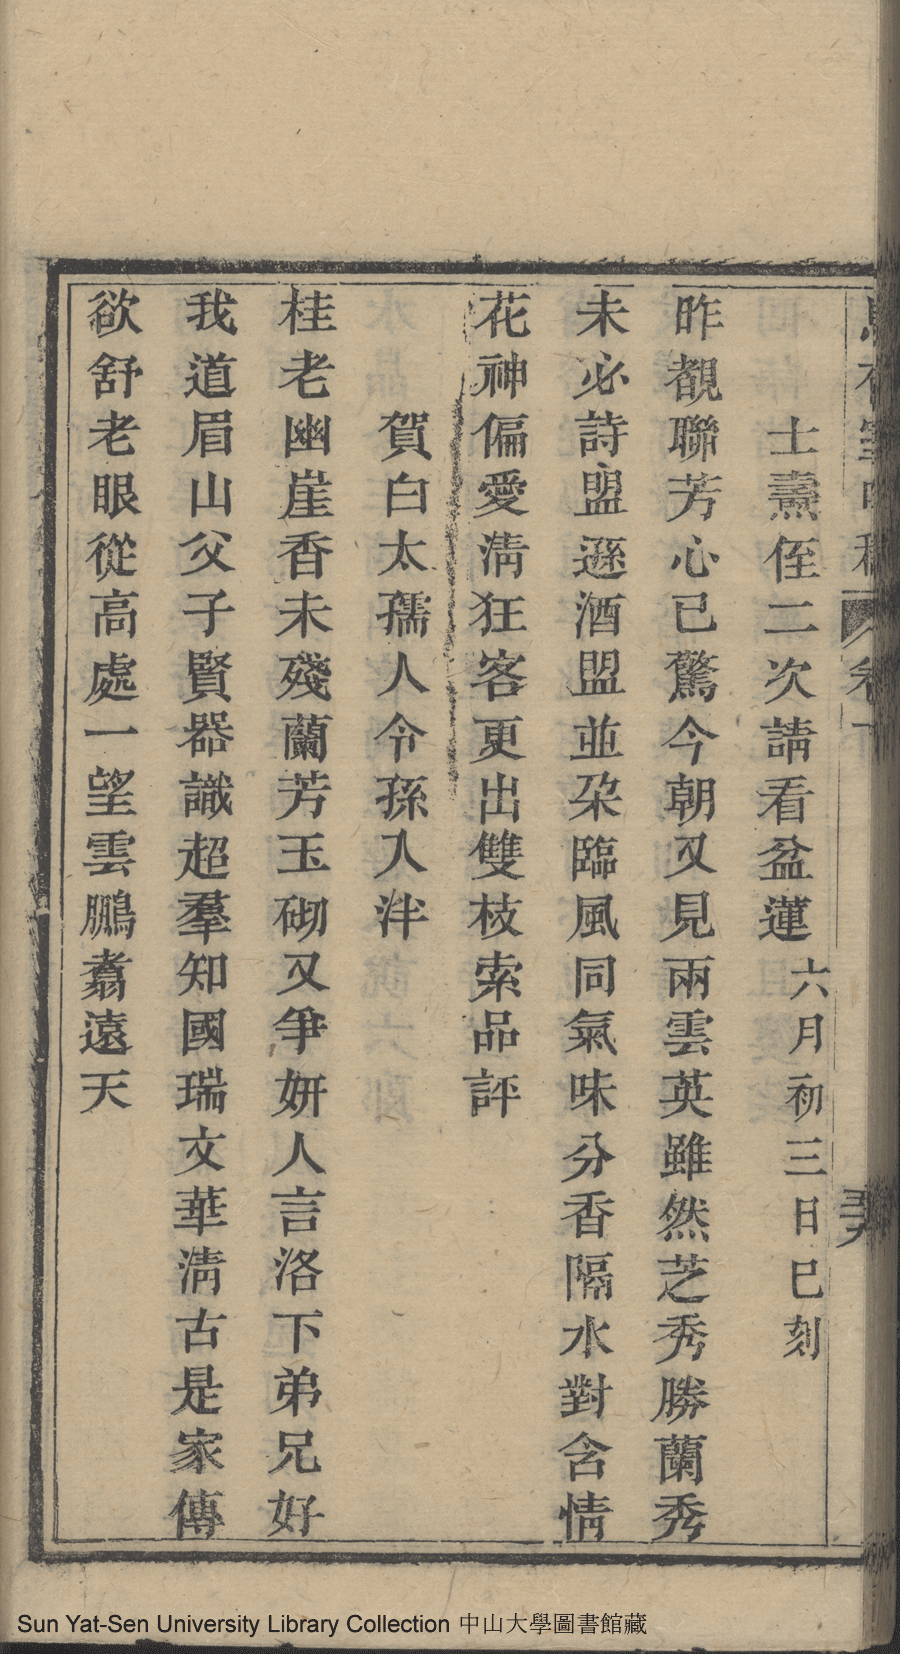 士燾侄二次請看盆蓮 六月初三日巳刻
昨覩聯芳心已驚今朝又見兩雲英雖然芝秀勝蘭秀
未必詩盟遜酒盟並朶臨風同氣味分香隔水對含情
花神偏愛淸狂客更出雙枝索品評
賀白太孺人令孫入泮
桂老幽崖香未殘蘭芳玉砌又爭妍人言洛下弟兄好
我道眉山父子賢器識超羣知國瑞文華淸古是家傳
欲舒老眼從高處一望雲鵬翥遠天
Sun Yat-Sen University Library Collection 中山大學圖書館藏